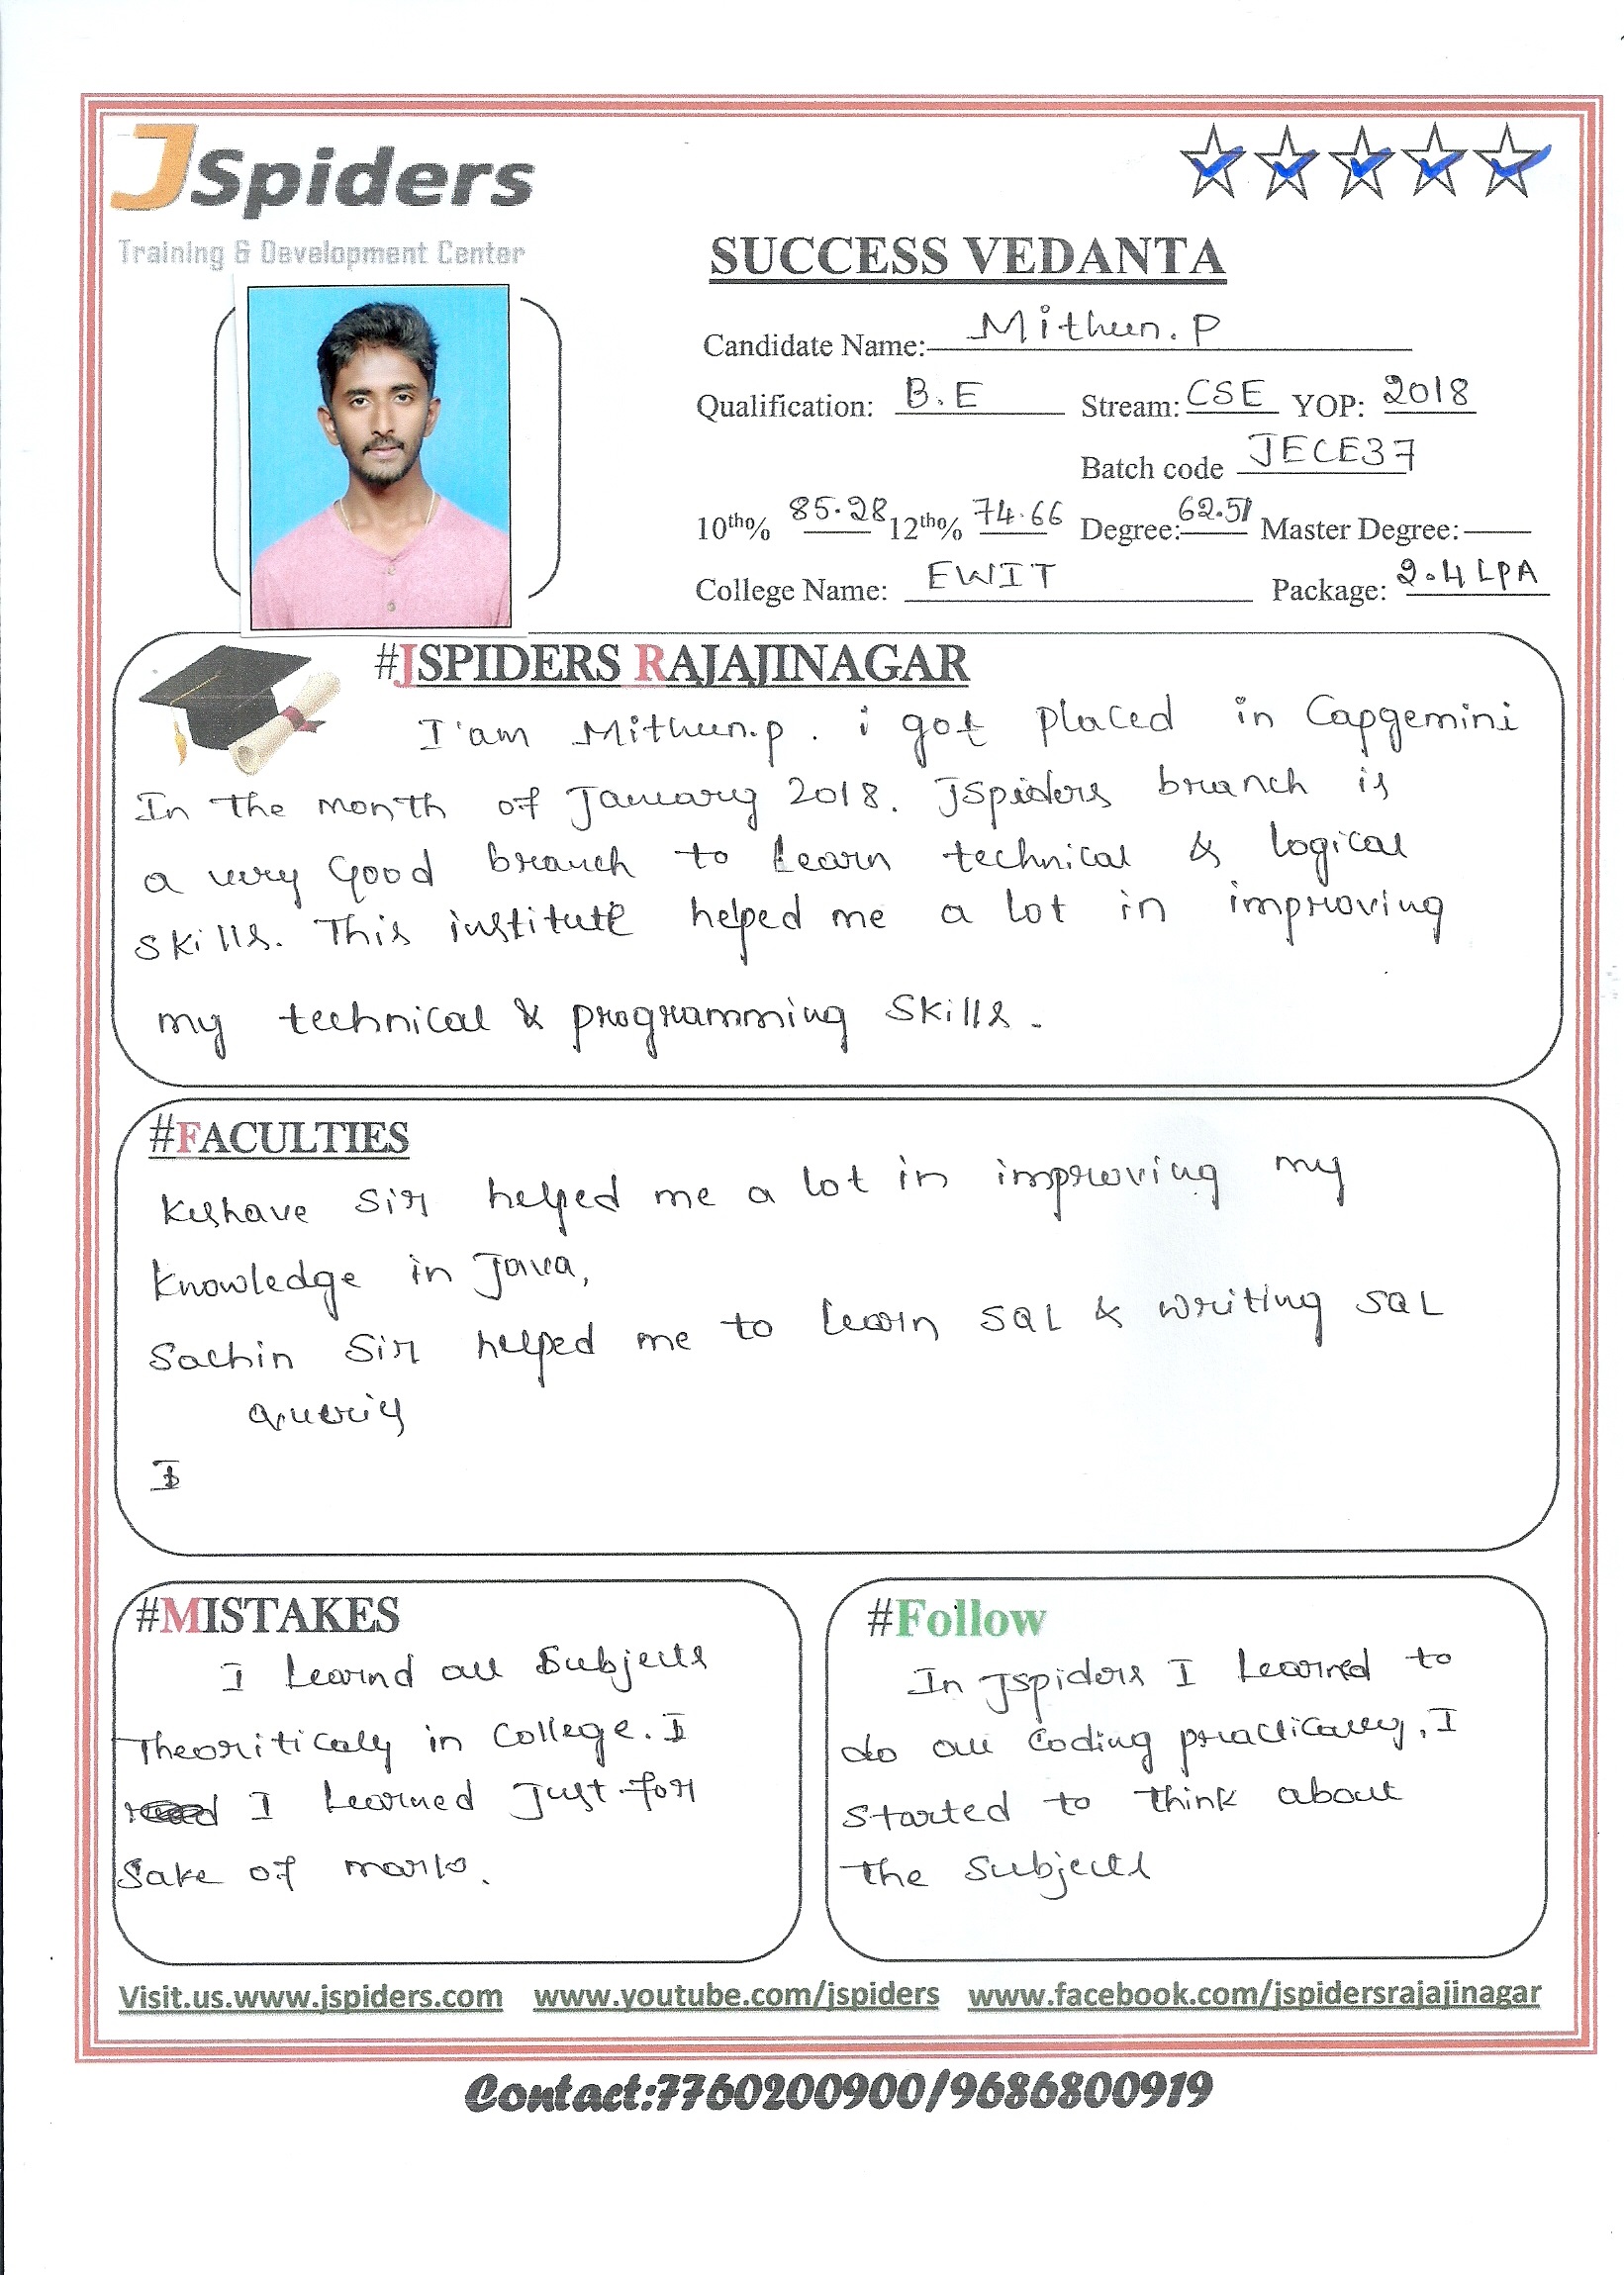 JSpiders
Training & Development Center
SUCCESS VEDANTA
Candidate Name: Mithun.P
Qualification: B.E Stream: CSE YOP: 2018
Batch code JECE37
10th% 85.28 12th% 74.66 Degree: 62.51 Master Degree:
College Name: EWIT Package: 2.4 LPA
#JSPIDERS RAJAJINAGAR
I'am Mithun.p. i got placed in Capgemini
In the month of January 2018. Jspiders branch is
a very Good branch to learn technical & logical
skills. This institute helped me a lot in improving
my technical & programming skills.
#FACULTIES
Keshave Sir helped me a lot in improving my
knowledge in Java,
Sachin Sir helped me to learn SQL & writing SQL
queries
I
#MISTAKES
I Learnd all Subjects
Theoriticaly in College. I
I Learned Just for
Sake of marks.
#Follow
In Jspiders I Learned to
do all Coding practically, I
started to think about
the Subjects
Visit.us.www.jspiders.com www.youtube.com/jspiders www.facebook.com/jspidersrajajinagar
Contact:7760200900/9686800919